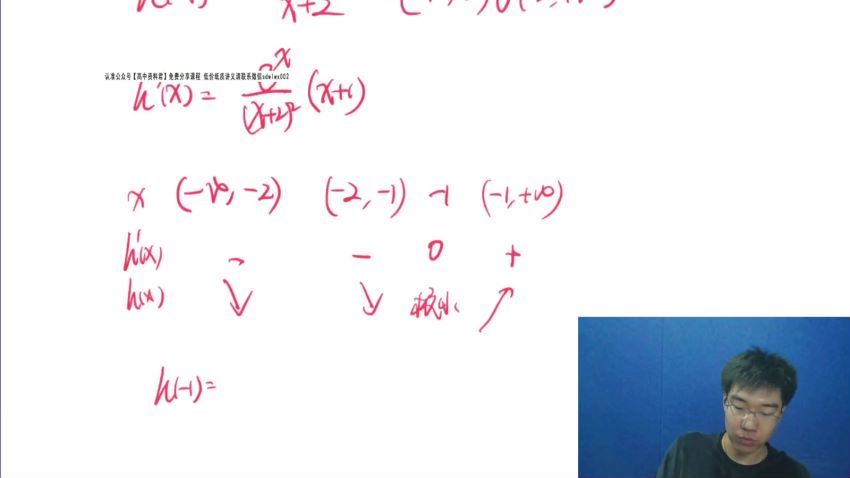 x+2
认准公众号【高中资料君】免费分享课程 低价纸质讲义请联系微信
h'(x) = e^x/(x+2)² (x+1)
x (-∞, -2) (-2, -1) -1 (-1, +∞)
h'(x) - - 0 +
h(x) ↘ ↘ 极小 ↗
h(-1)=